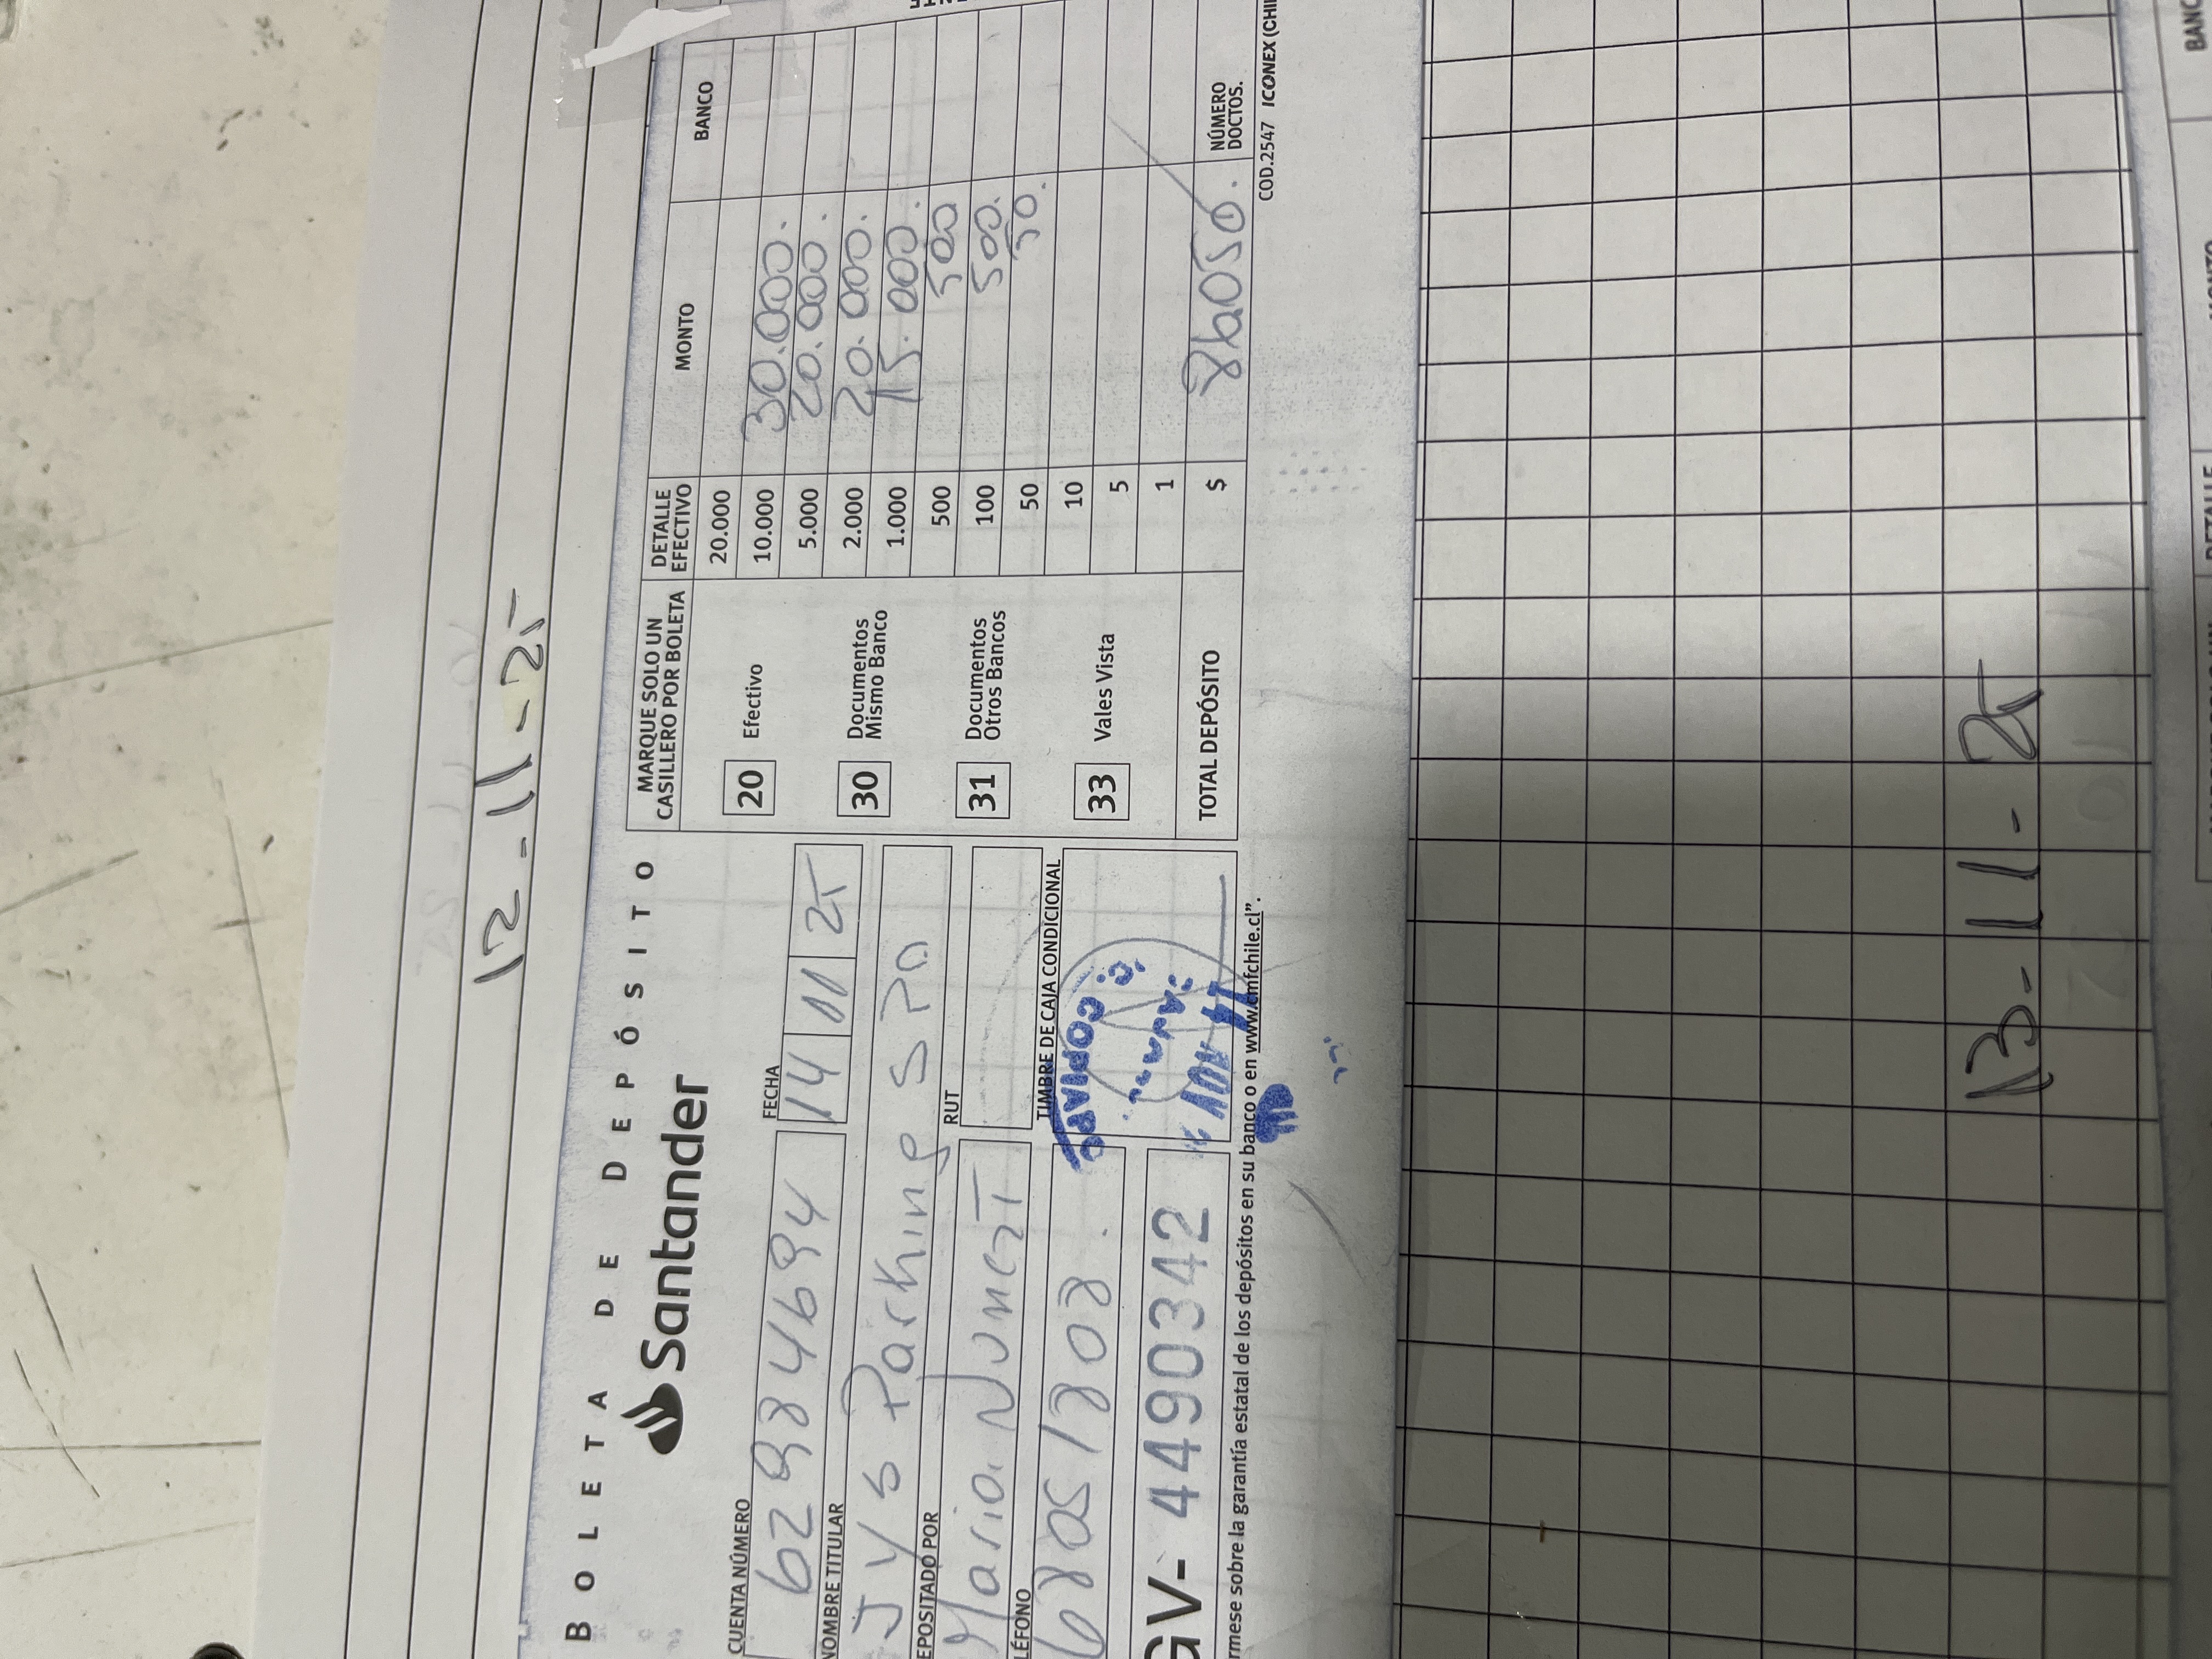 12-11-25
BOLETA DE DEPÓSITO
Santander
CUENTA NÚMERO
62984694
FECHA
14 11 25
NOMBRE TITULAR
J y S Parking SPA
EPOSITADO POR
Maria Nunez
RUT
LÉFONO
TIMBRE DE CAJA CONDICIONAL
GV- 4490342
rmese sobre la garantía estatal de los depósitos en su banco o en www.cmfchile.cl".
MARQUE SOLO UN CASILLERO POR BOLETA
20 Efectivo
30 Documentos Mismo Banco
31 Documentos Otros Bancos
33 Vales Vista
DETALLE EFECTIVO MONTO BANCO
20.000
10.000 30.000.
5.000 20.000.
2.000 20.000.
1.000 15.000.
500 500
100 500.
50 50.
10
5
1
TOTAL DEPÓSITO $ 86050. NÚMERO DOCTOS.
COD.2547 ICONEX (CHI
13-11-25
BANC